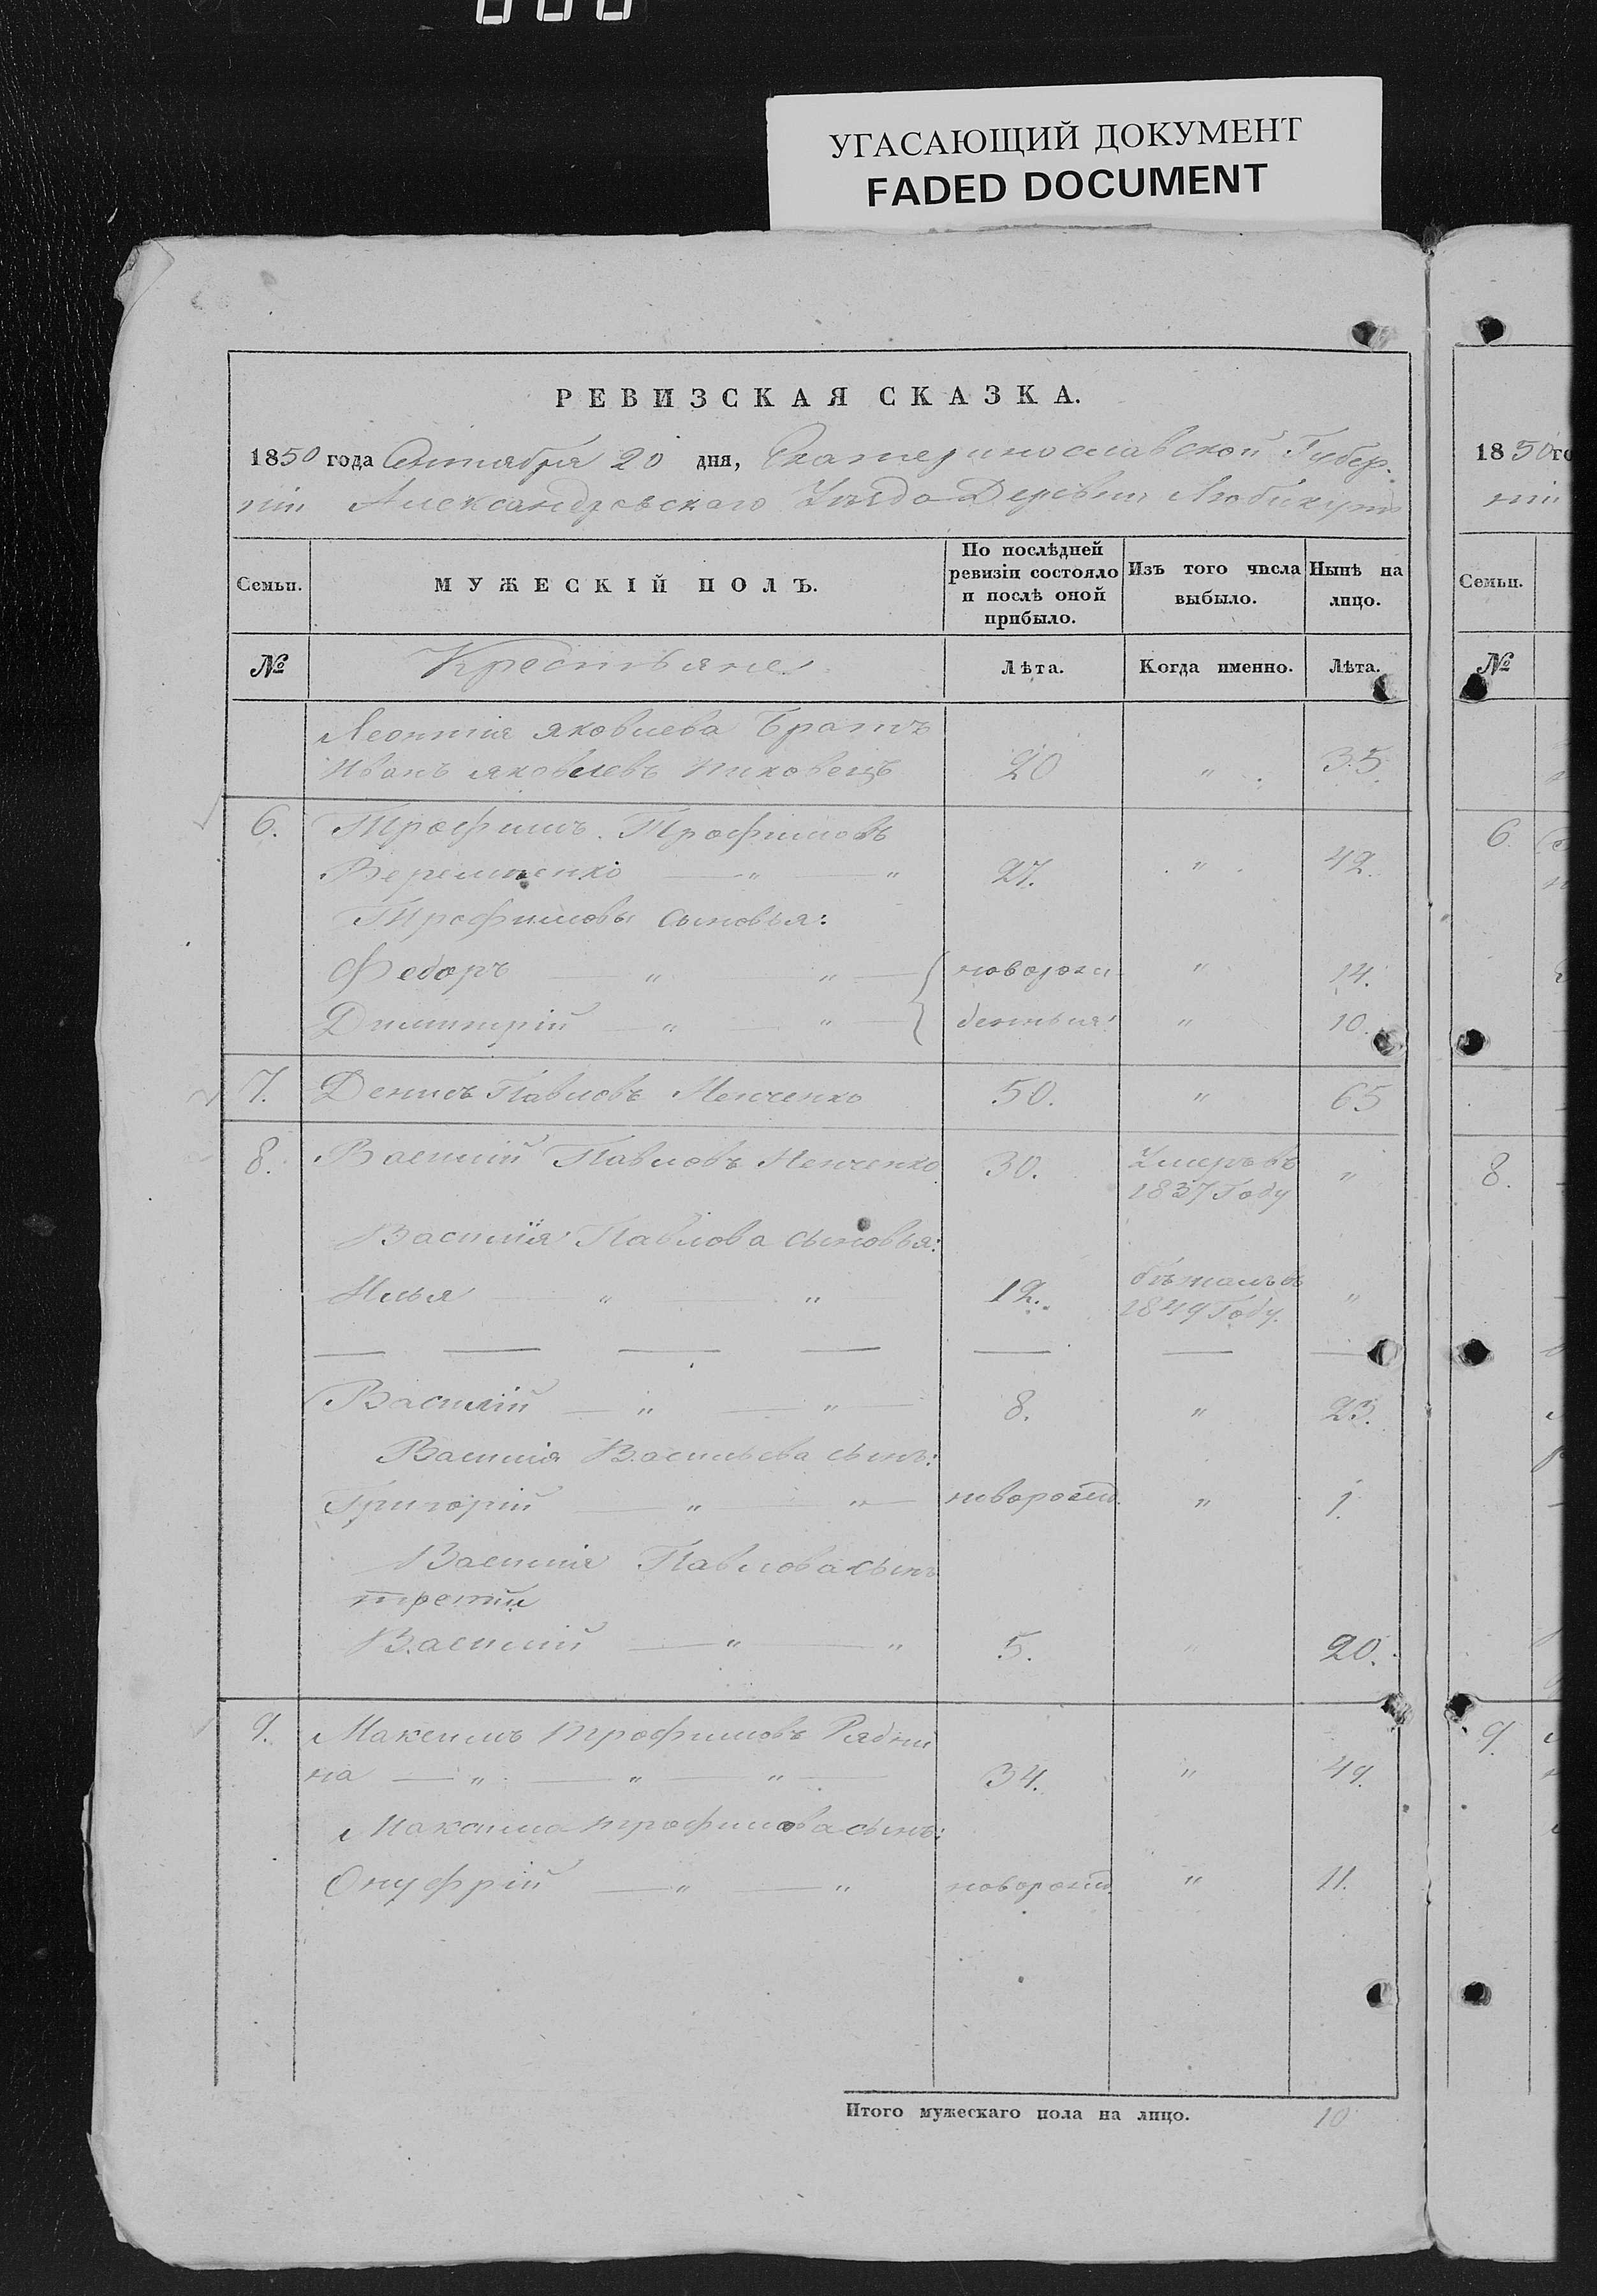 УГАСАЮЩИЙ ДОКУМЕНТ
FADED DOCUMENT
РЕВИЗСКАЯ СКАЗКА.
1850 года Октября 20 дня, Екатеринославской Губер
ніи Александровскаго Уѣзда Деревни
Семьи.
МУЖЕСКІЙ ПОЛЪ.
По послѣдней ревизіи состояло и послѣ оной прибыло.
Изъ того числа выбыло.
Нынѣ на лицо.
№ Крестьяне Лѣта. Когда именно. Лѣта.
Леонтія Яковлева Братъ
Иванъ Яковлевъ 20 " 35.
6. Трофимъ Трофимовъ
Веременко " " 27. " 42.
Трофимовы сыновья:
Федоръ " " { новорож " 14.
Дмитрій " " { денныя " 10.
7. Денисъ Павловъ 50. " 65
8. Василій Павловъ 30. Умеръ въ "
1837 Году
Василія Павлова сыновья:
Илья " " 12. бѣжалъ въ "
1849 Году.
Василій " " 8. " 23.
Василія Васильева сынъ:
Григорій " " новорожд. " 1.
Василія Павлова сынъ
третій
Василій " " 5. 20.
9. Максимъ Трофимовъ Рябни
на " " " 34. " 49.
Максима Трофимова сынъ:
Онуфрій " " новорожд. " 11.
Итого мужескаго пола на лицо. 10
1850 го
ніи
Семьи.
№
6
8.
9.